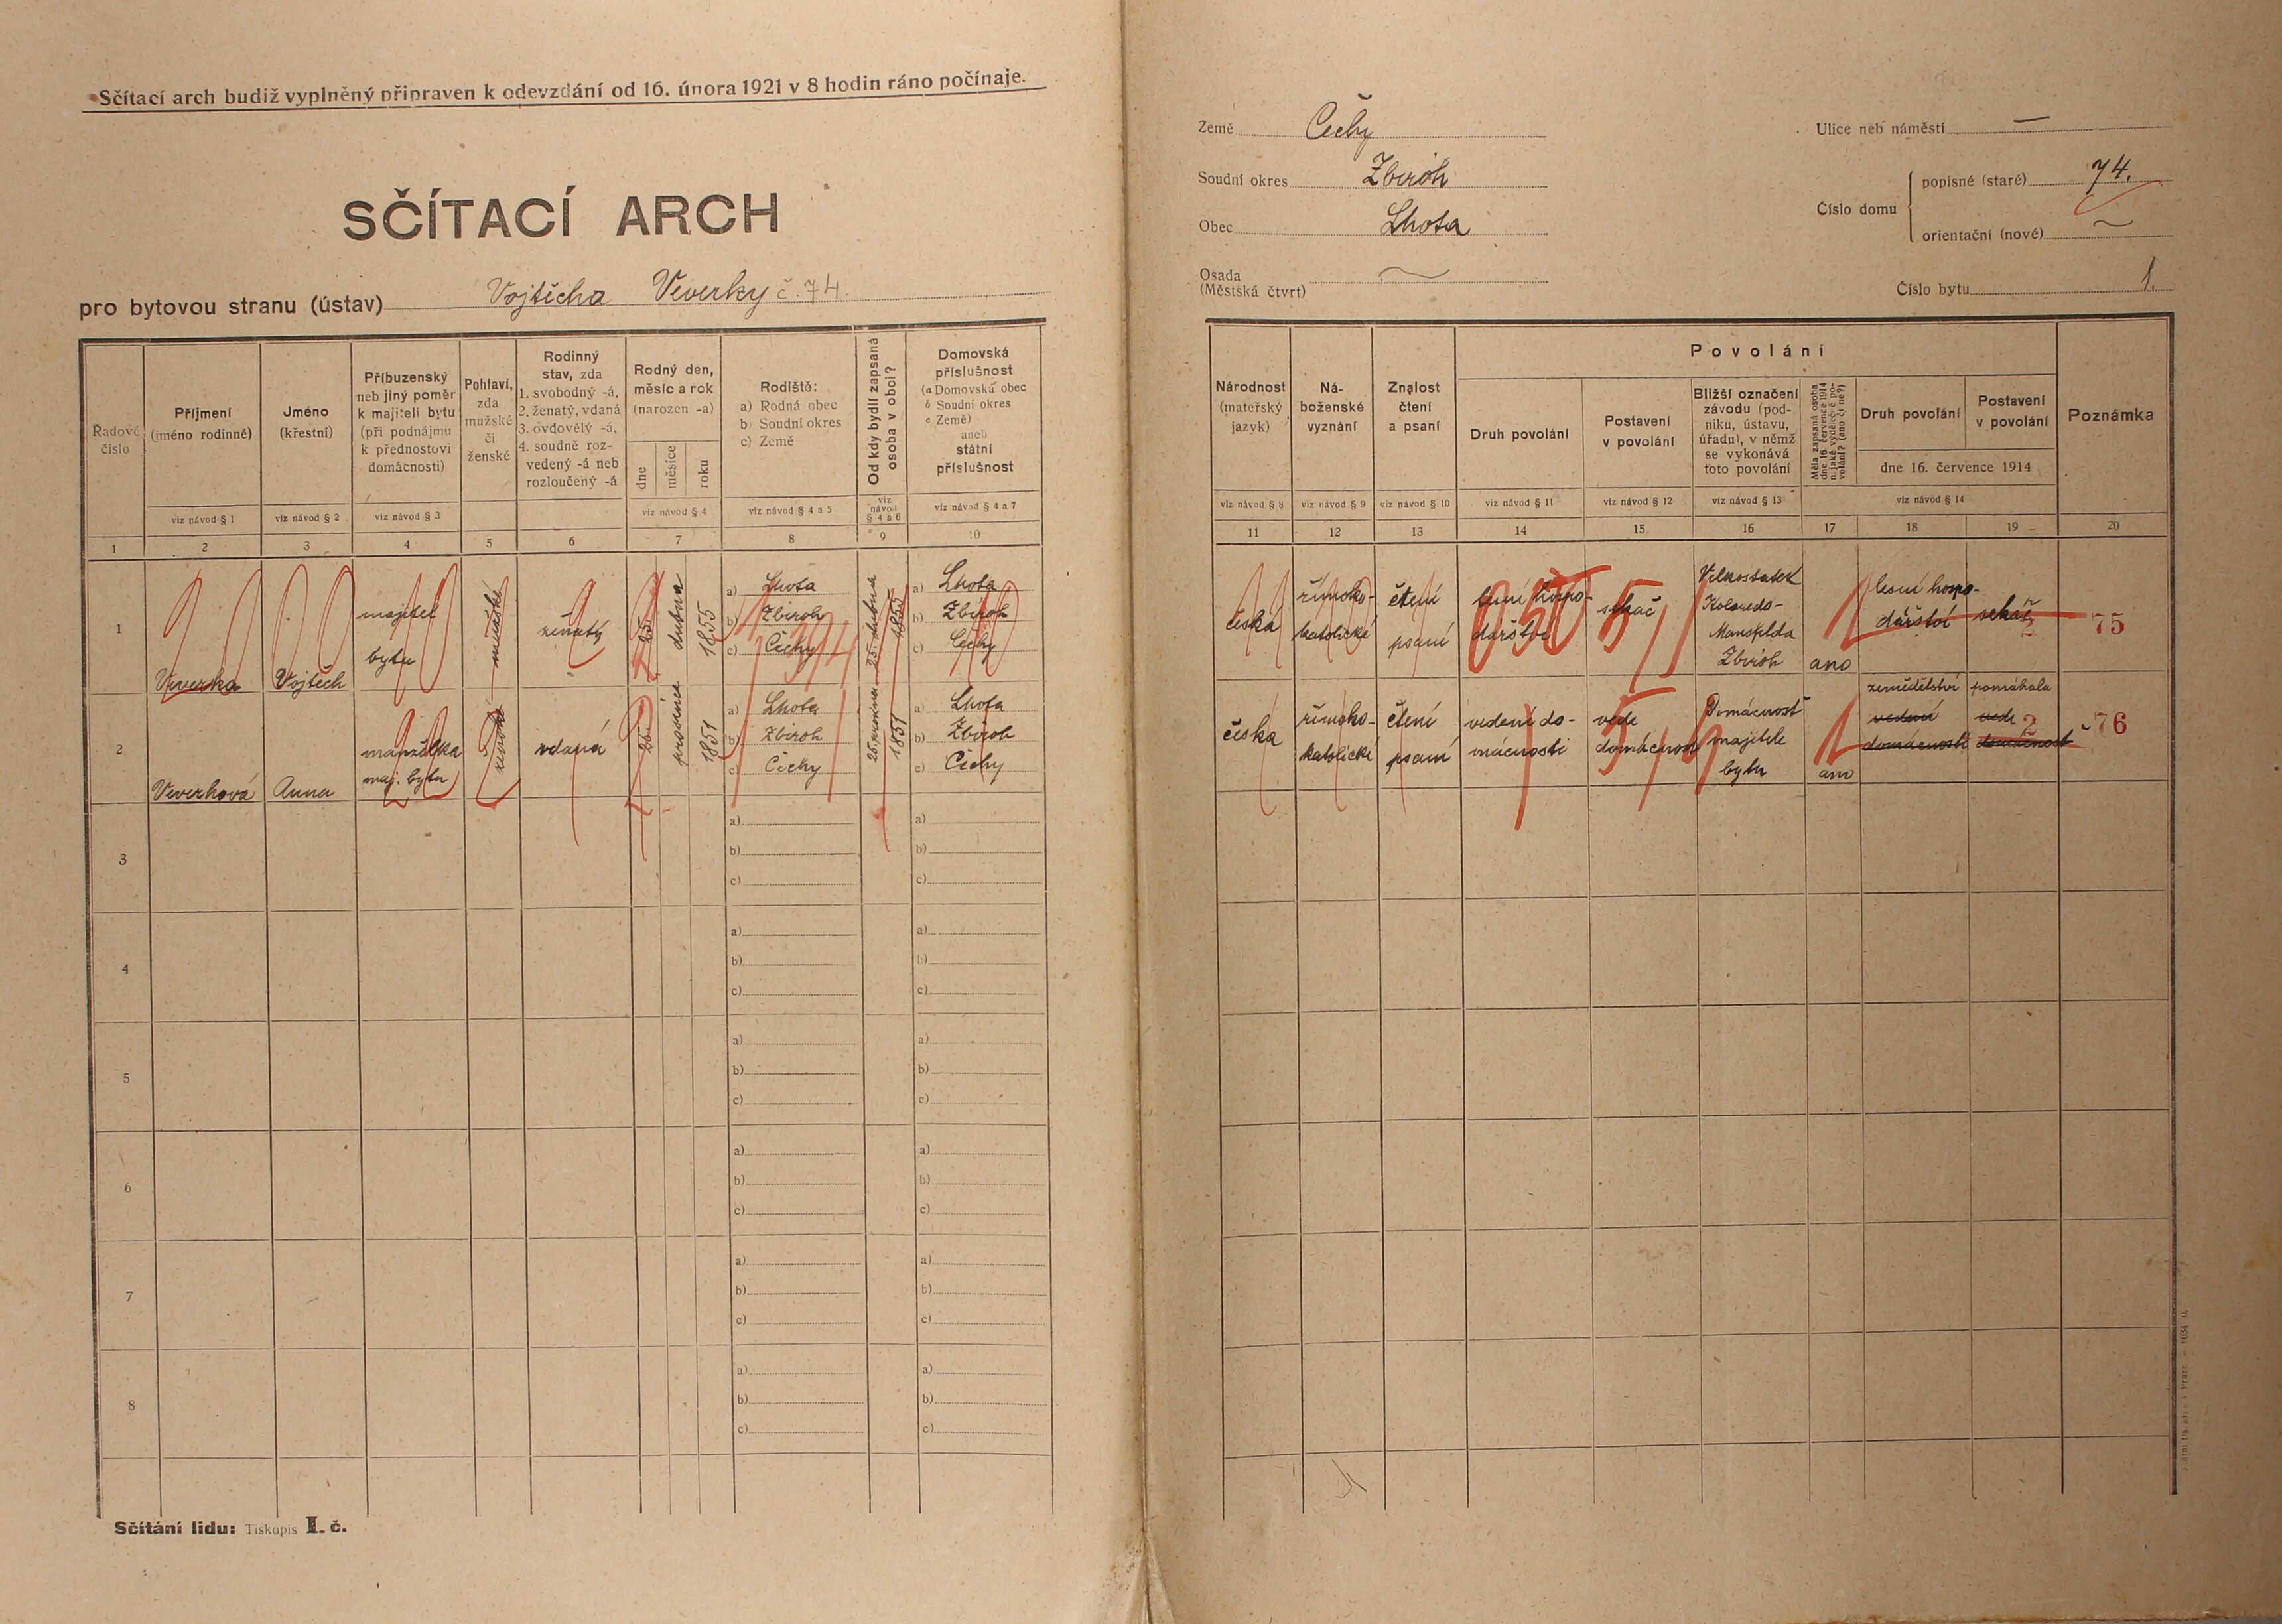 Sčítací arch budiž vyplněný připraven k odevzdání od 16. února 1921 v 8 hodin ráno počínaje.
SČÍTACÍ ARCH
pro bytovou stranu (ústav) Vojtěcha Veverky č. 74.
Země Čechy
Soudní okres Zbiroh
Obec Lhota
Osada
(Městská čtvrt)
Ulice neb náměstí —
Číslo domu
popisné (staré) 74.
orientační (nové) ~
Číslo bytu 1.
Řadové číslo
Příjmení (jméno rodinné)
Jméno (křestní)
Příbuzenský neb jiný poměr k majiteli bytu (při podnájmu k přednostovi domácnosti)
Pohlaví, zda mužské či ženské
Rodinný stav, zda
1. svobodný -á,
2. ženatý, vdaná
3. ovdovělý -á,
4. soudně rozvedený -á neb rozloučený -á
Rodný den, měsíc a rok (narozen -a)
dne měsíce roku
Rodiště:
a) Rodná obec
b) Soudní okres
c) Země
Od kdy bydlí zapsaná osoba v obci?
Domovská příslušnost
(a Domovská obec
b Soudní okres
c Země)
aneb
státní příslušnost
viz návod § 1 viz návod § 2 viz návod § 3 viz návod § 4 viz návod § 4 a 5 viz návod § 4 a 6 viz návod § 4 a 7
1 2 3 4 5 6 7 8 9 10
Národnost (mateřský jazyk)
Náboženské vyznání
Znalost čtení a psaní
Povolání
Druh povolání
Postavení v povolání
Bližší označení závodu (podniku, ústavu, úřadu), v němž se vykonává toto povolání
Měla zapsaná osoba dne 16. července 1914 n. jaké výdělečné povolání? (ano či ne?)
Druh povolání
Postavení v povolání
dne 16. července 1914
Poznámka
viz návod § 8 viz návod § 9 viz návod § 10 viz návod § 11 viz návod § 12 viz návod § 13 viz návod § 14
11 12 13 14 15 16 17 18 19 20
1
Veverka
Vojtěch
majitel
bytu
mužské
ženatý
25 dubna 1855
a) Lhota
b) Zbiroh
c) Čechy
25. dubna 1855
a) Lhota
b) Zbiroh
c) Čechy
česká
římsko-
katolické
čtení
psaní
lesní hospo-
dářství
sekáč
Velkostatek
Koloredo-
Mansfelda
Zbiroh
ano
lesní hospo-
dářství
sekáč
75
2
Veverková
Anna
manželka
maj. bytu
ženské
vdaná
25 prosince 1851
a) Lhota
b) Zbiroh
c) Čechy
25. prosince 1851
a) Lhota
b) Zbiroh
c) Čechy
česká
římsko-
katolické
čtení
psaní
vedení do-
mácnosti
vede
domácnost
Domácnost
majitele
bytu
ano
zemědělství
vedení
domácnosti
pomáhala
vede
domácnost
76
3
a)
b)
c)
a)
b)
c)
4
a)
b)
c)
a)
b)
c)
5
a)
b)
c)
a)
b)
c)
6
a)
b)
c)
a)
b)
c)
7
a)
b)
c)
a)
b)
c)
8
a)
b)
c)
a)
b)
c)
Sčítání lidu: Tiskopis I. č.